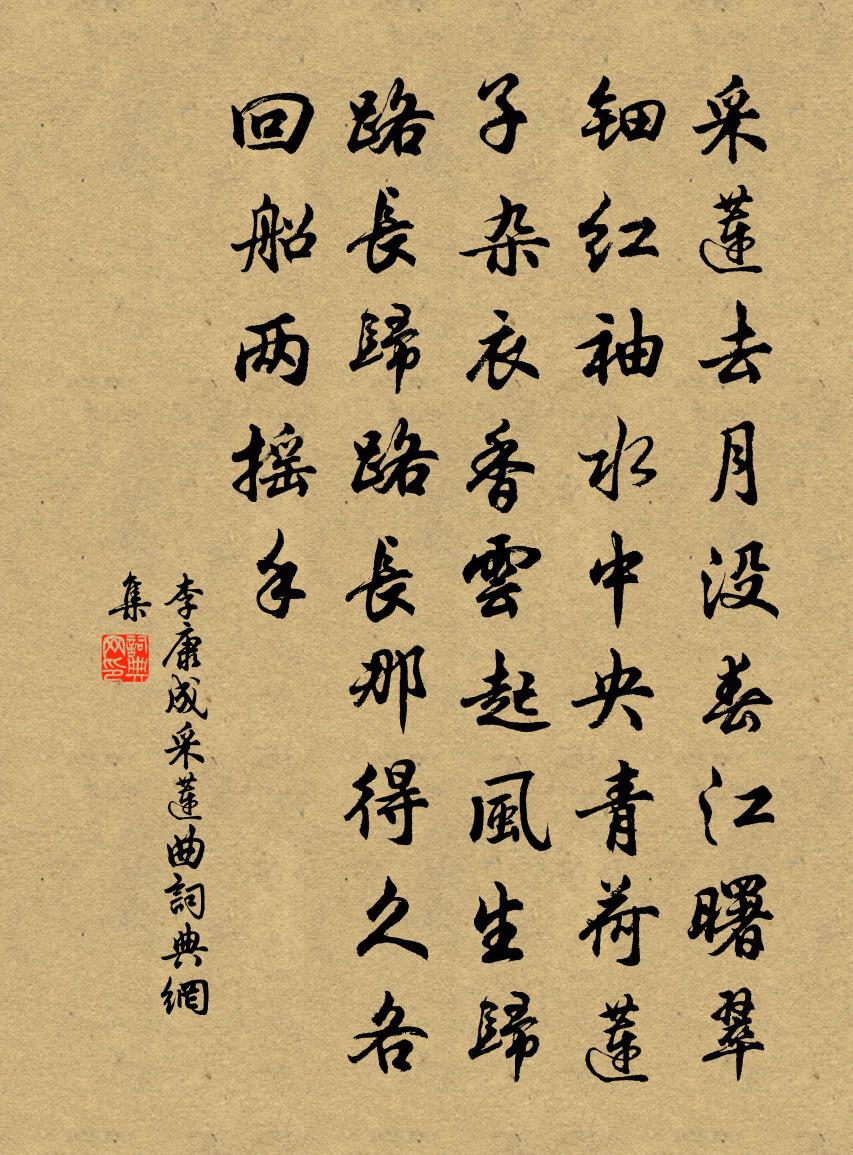 采蓮去月没春江曙翠
鈿红袖水中央青荷蓮
子杂衣香雲起風生歸
路長歸路長那得久各
回船两摇手
李康成采蓮曲詞典網
集
詞典
网印